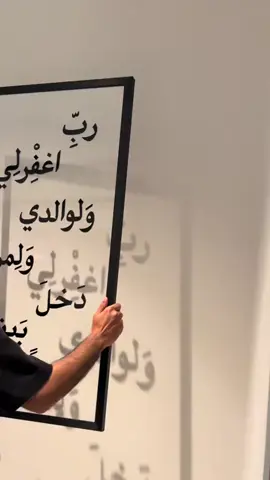 ربِّ
اغفْرلِي
وَلوالدي
وَلِمن
دَخلَ